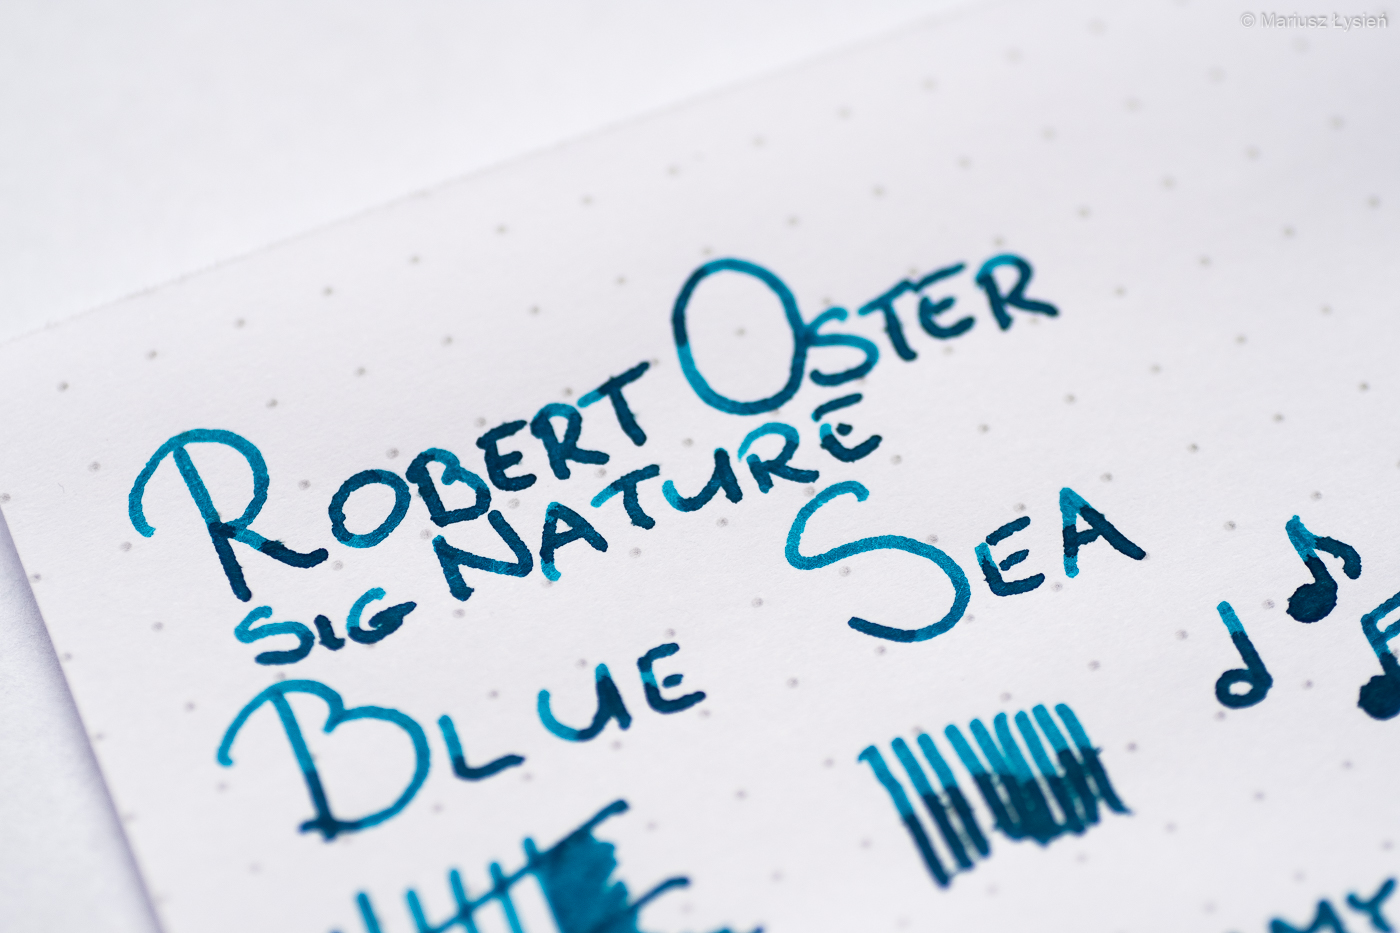 © Mariusz Łysień
ROBERT OSTER
SIGNATURE
BLUE SEA
MY